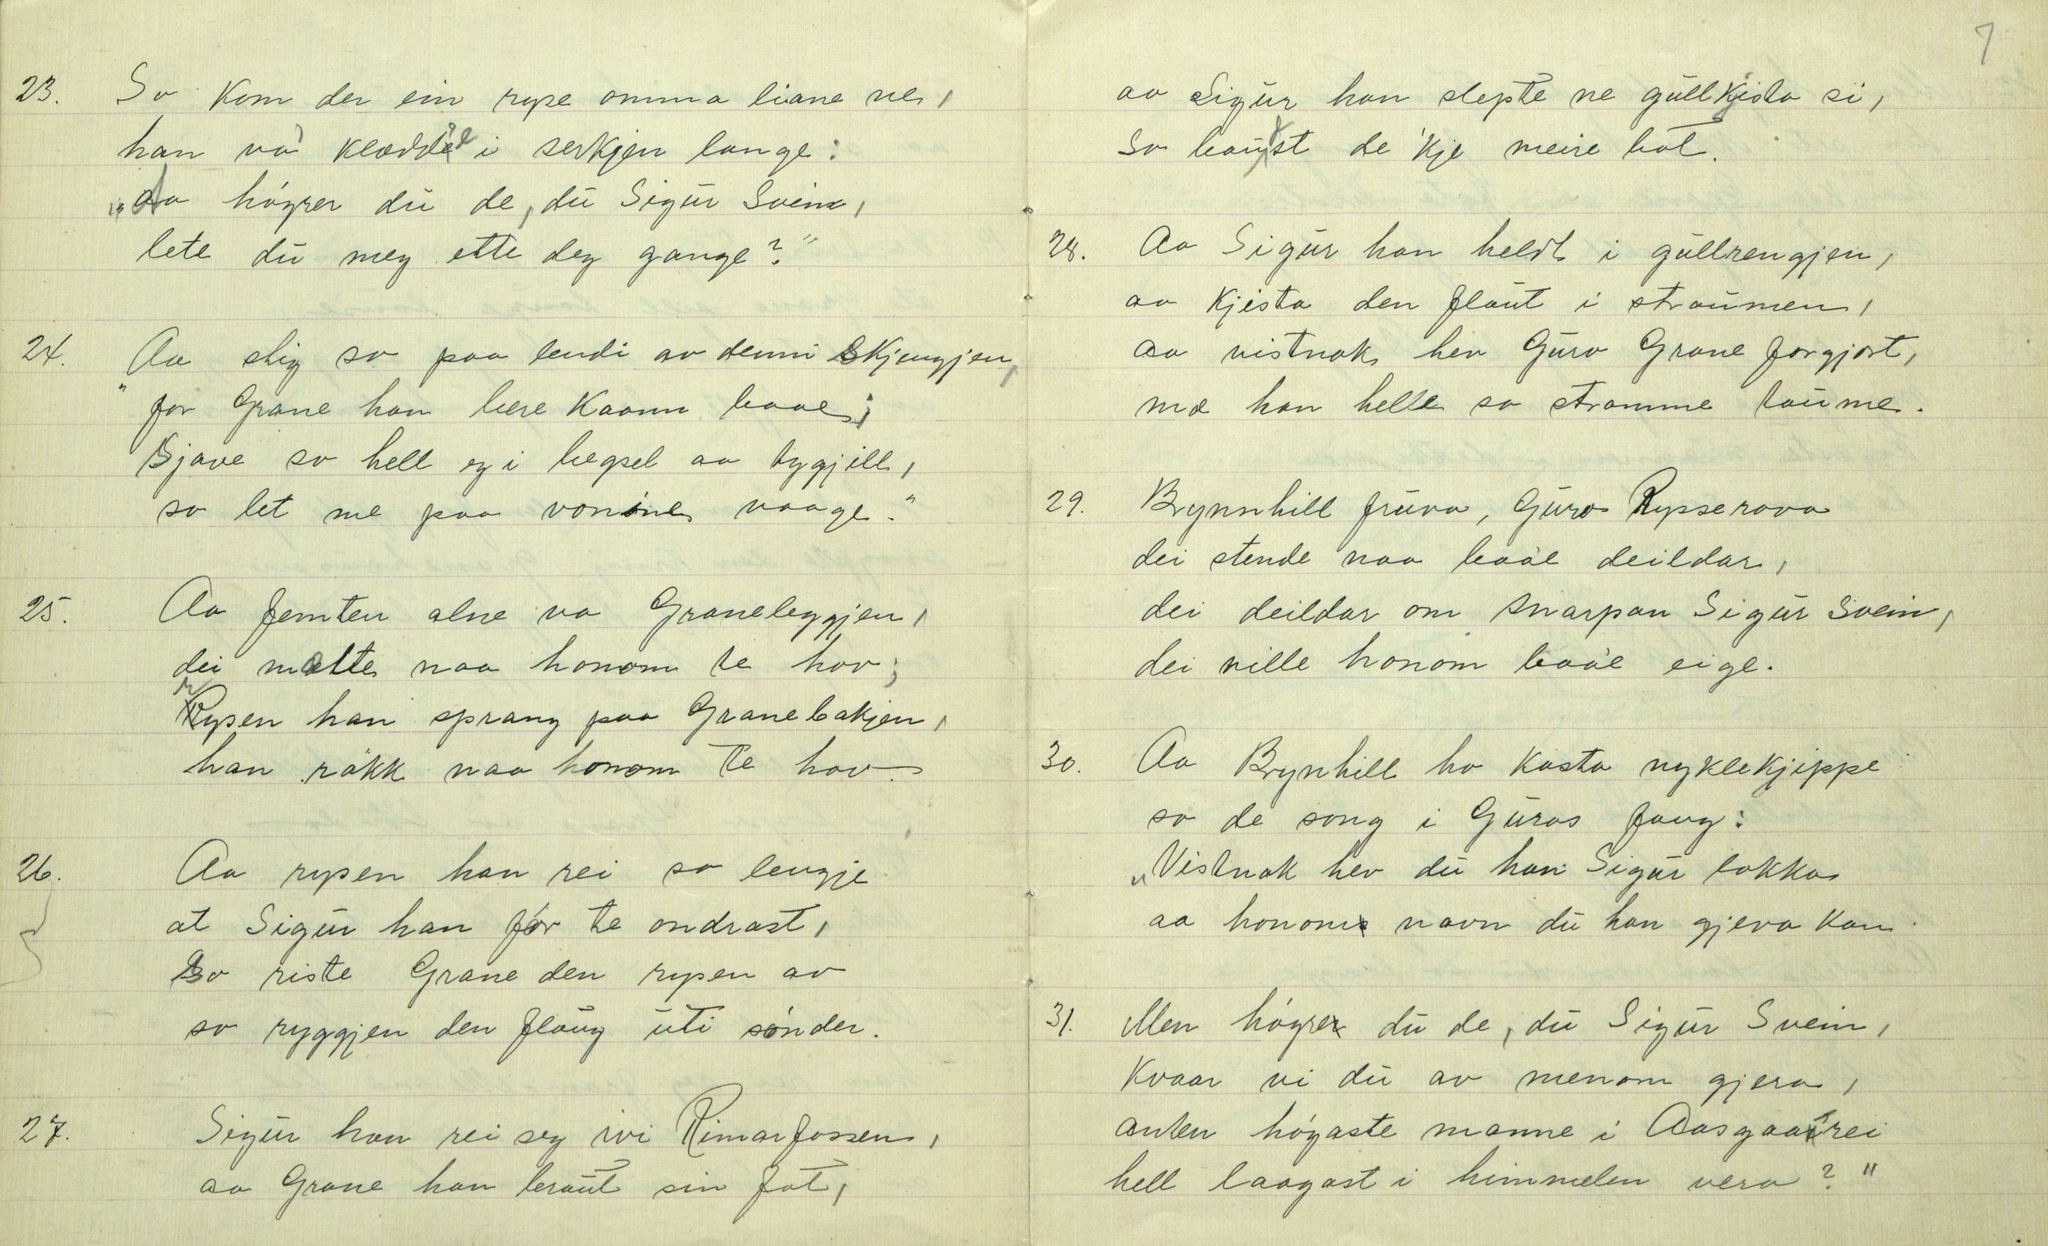 23. So kom der ein ryse omma liane ne,
han va klædde i serkjen lange:
"aa høyrer du de, du Sigur Svein,
lete du meg ette deg gange?"
24. "Aa stig so paa lendi av denni skjengjen,
for Grane han bere kaann baae;
Sjave so hell eg i begsel aa tygjill,
so let me paa vonine vaage."
25. Aa femten alne va Graneleggjen,
dei matte naa honom te hov;
rysen han sprang paa Granebakjen,
han råkk naa honom te hov.
26. Aa rysen han rei so lengje
at Sigur han før te ondrast,
so riste Grane den rysen av
so ryggjen den flaug uti sønder.
27. Sigur han rei seg ivi Rimarfossen,
aa Grane han braut sin fot,
7
aa Sigur han slepte ne gullkjista si,
so baust de 'kje meire bot.
28. Aa Sigur han heldt i gullrengjen,
aa kjista den flaut i straumen,
aa vistnok hev Guro Grane forgjort,
mæ han helle so stramme taume.
29. Brynnhill fruva, Guro Rysserova
dei stende naa baae deildar,
dei deildar om snarpan Sigur Svein,
dei ville honom baae eige.
30. Aa Brynhill ho kasta nyklekjippe
so de song i Guros fang:
"Vistnok hev du han Sigur lokka
aa honom navn du han gjeva kan.
31. Men høyre du de, du Sigur Svein,
kvaar vi du av menom gjera,
anten høgaste manne i Aasgaatrei
hell laagast i himmelen vera?"